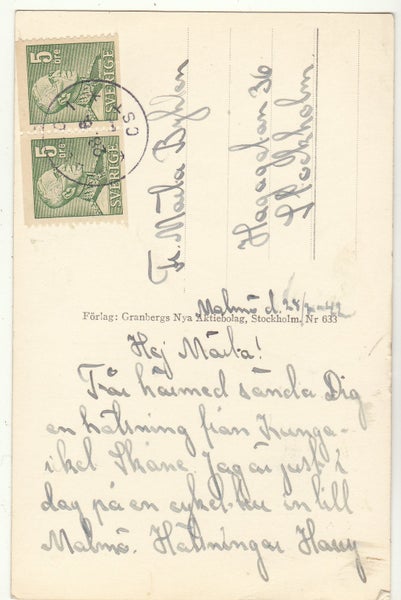 5 öre
SVERIGE
5 öre
SVERIGE
Fr. Märta Byhlén
Hagagatan 36
Stockholm.
Förlag: Granbergs Nya Aktiebolag, Stockholm. Nr 633
Malmö d. 28/7-42
Hej Märta!
Får härmed sända Dig
en hälsning från Kunga-
riket Skåne. Jag är just i
dag på en cykeltur in till
Malmö. Hälsningar Harry